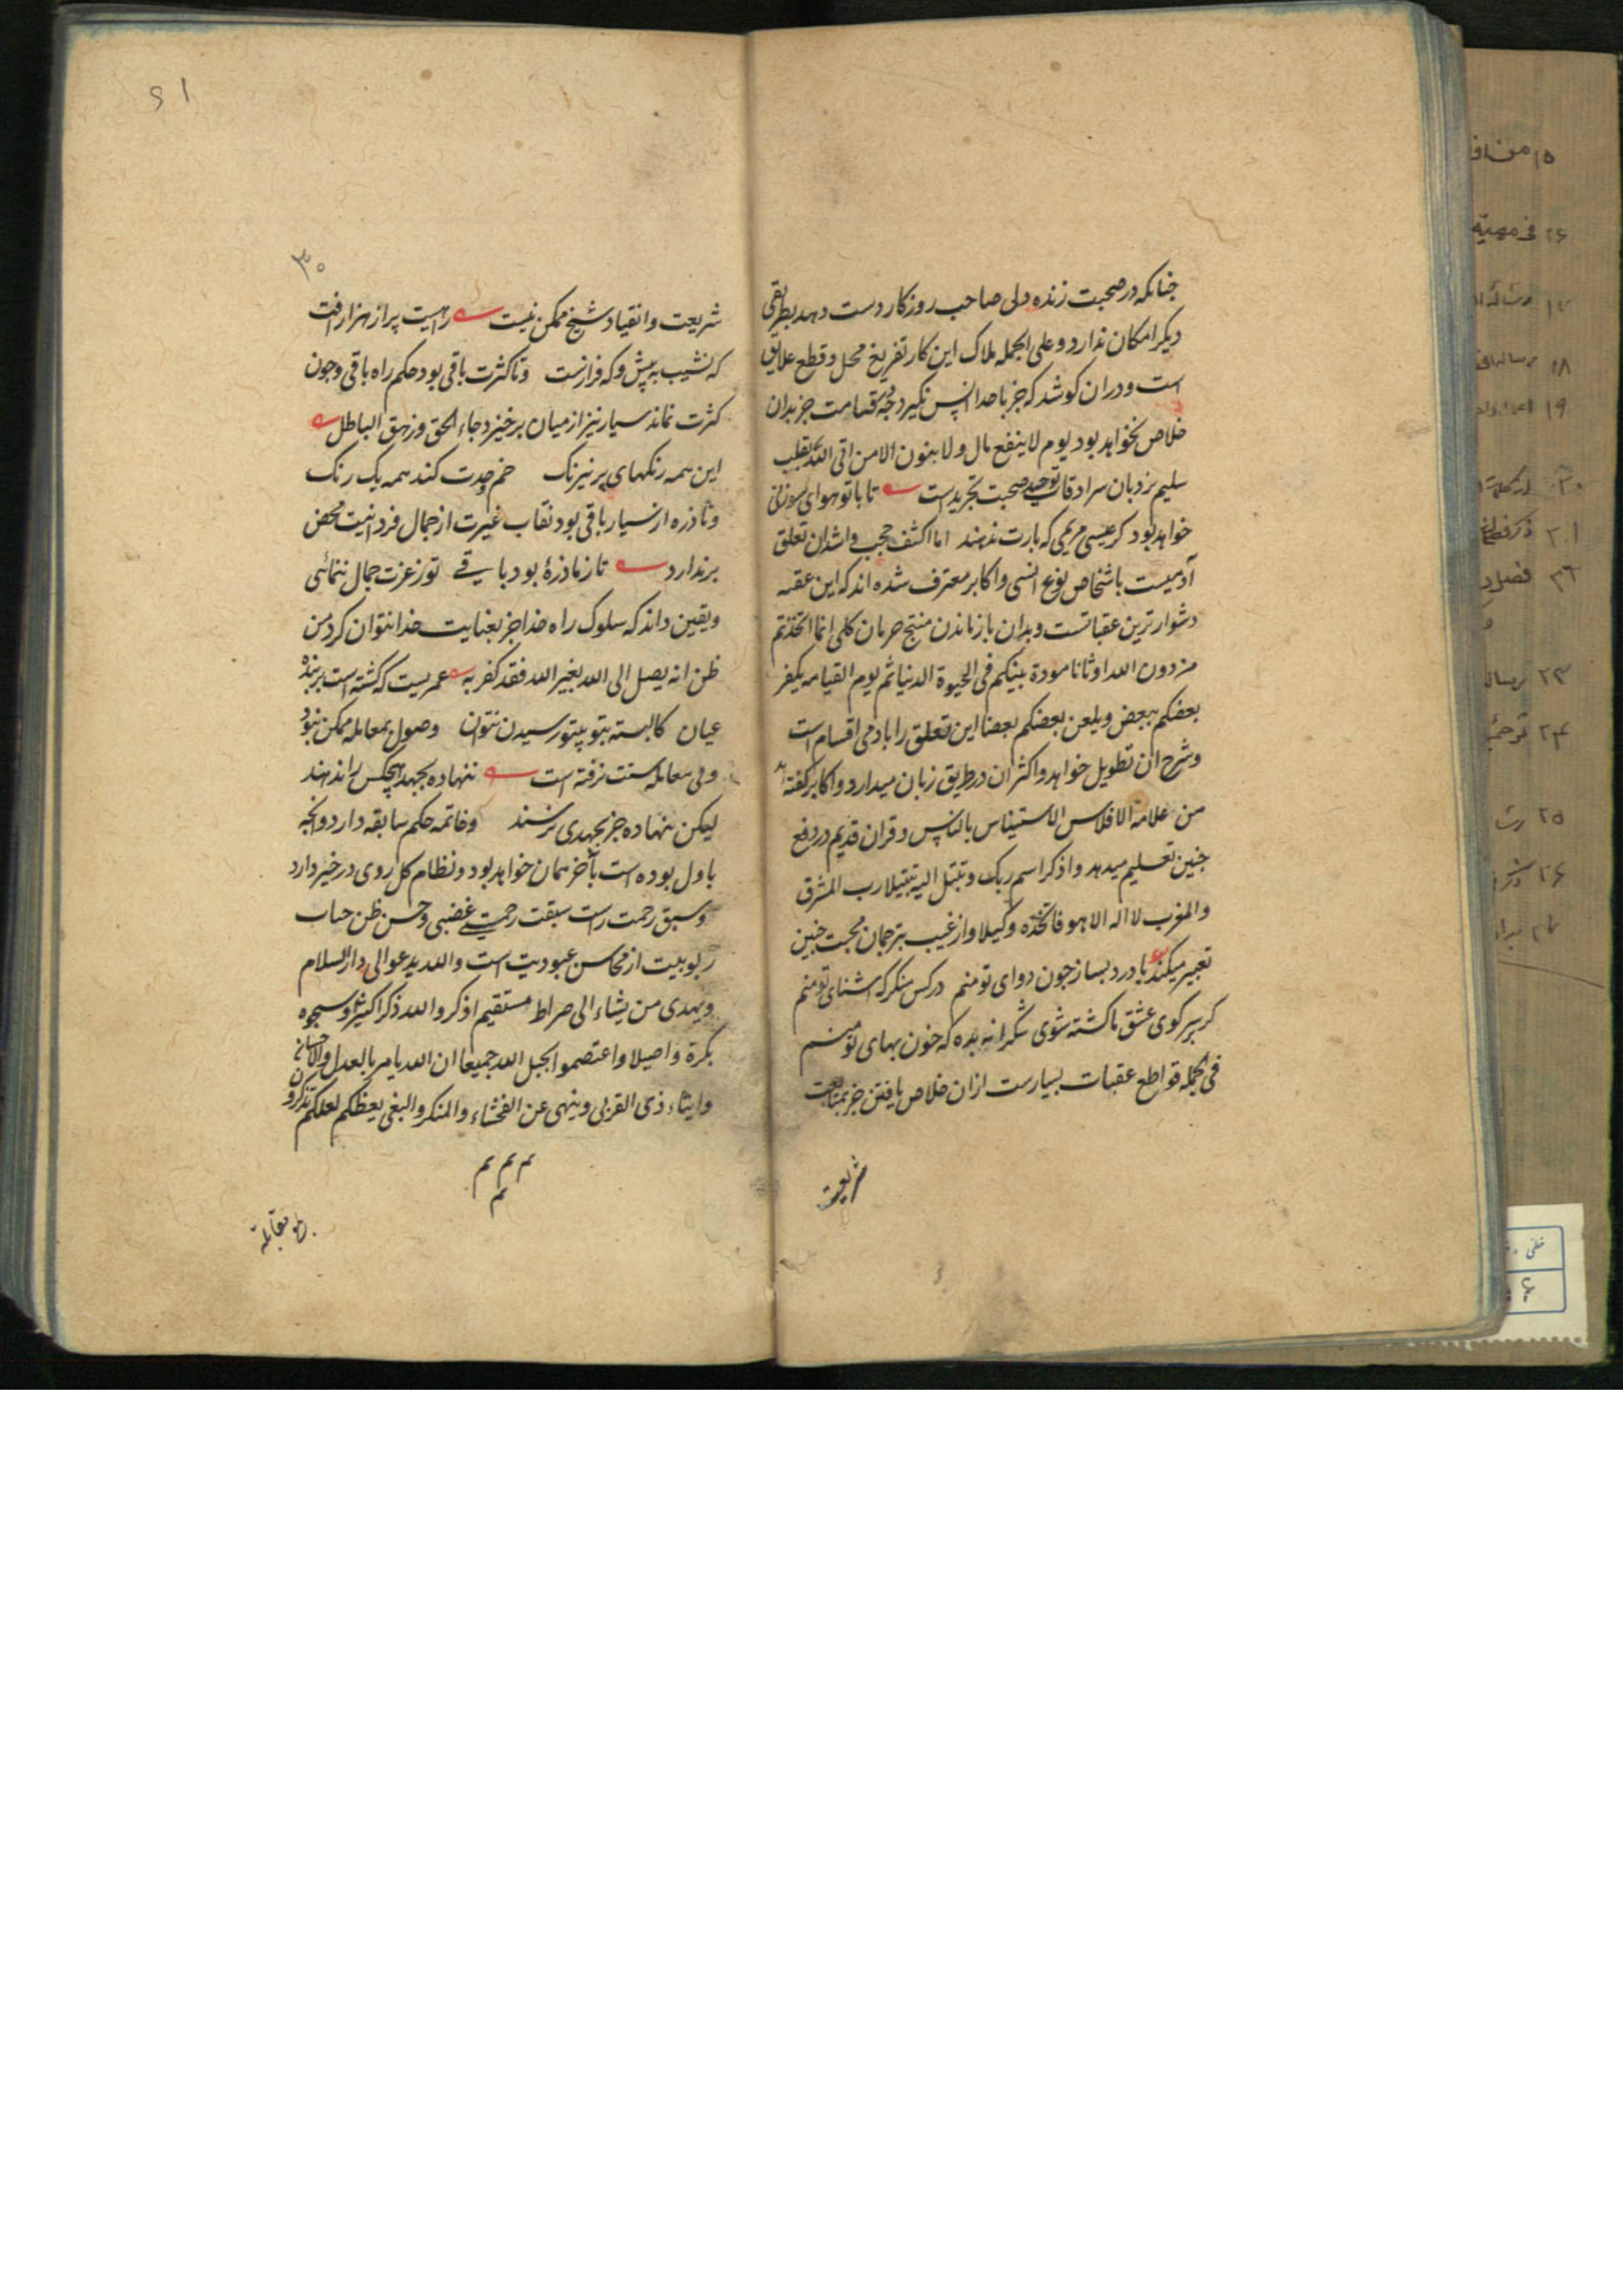 جنانکه در صحبت زنده دلی صاحب روزکار دست دهد بطریقی
دیکر امکان ندارد و علی الجمله ملاک این کار تفریغ محل و قطع علایق
است و دران کوشد که جز با خدا انس نکیرد جه قیامت جز بدان
خلاص نخواهد بود یوم لا ینفع مال و لا بنون الا من اتی الله بقلب
سلیم نردبان سرادقات توحید صحبت تجریدست تا با تو هوای سوزنی
خواهد بود کر عیسی مریمی که بارت ندهند اما اکثف حجب و اشد ان تعلق
آدمیست باشخاص نوع انسی و اکابر معترف شده اند که این عقبه
دشوارترین عقباتست و بدان باز ماندن منتج حرمان کلی انما اتخذتم
من دون الله اوثانا مودة بینکم فی الحیوة الدنیا ثم یوم القیامه یکفر
بعضکم ببعض و یلعن بعضکم بعضا این تعلق را با دمی اقسام است
و شرح ان تطویل خواهد و اکثر ان در طریق زبان میدارد و اکابر کفته اند
من علامة الافلاس الاستیناس بالناس و قران قدیم در دفع
جنین تعلیم میدهد و اذکر اسم ربک و تبتل الیه تبتیلا رب المشرق
و المغرب لا اله الا هو فاتخذه وکیلا و از غیب بترجمان محبت جنین
تعبیر میکند با درد بساز جون دوای تو منم در کس منکر که اشنای تو منم
کر بر سر کوی عشق ما کشته شوی شکرانه بده که خون بهای تو منم
فی الجمله قواطع عقبات بسیارست ازان خلاص یافتن جز بمتابعت
شریعت
۳۰
شریعت و انقیاد شیخ ممکن نیست راهیست پر از هزار افت
که نشیب به پیش و که فرازست و تا کثرت باقی بود حکم راه باقی و جون
کثرت نماند سیار نیز از میان برخیزد جاء الحق و زهق الباطل
این همه رنکهای پر نیرنک خم وحدت کند همه یک رنک
و تا ذره از سیار باقی بود نقاب غیرت از جمال فردانیت محض
برندارد تا زما ذرهٔ بود باقی تو ز عزت جمال ننمائی
و یقین داند که سلوک راه خدا جز بعنایت خدا نتوان کرد من
ظن انه یصل الی الله بغیر الله فقد کفر به عمریست که کشته است بر بنده
عیان کالبته بتو بیتو رسیدن نتوان وصول بمعامله ممکن نبود
و بی معامله سنت نرفته است ننهاده بجهد هیچکس را ندهند
لیکن ننهاده جز بجهدی نرسند و خاتمه حکم سابقه دارد و انجه
باول بوده است بآخر همان خواهد بود و نظام کل روی در خیر دارد
و سبق رحمت راست سبقت رحمتی غضبی و حسن ظن جناب
ربوبیت از محاسن عبودیت است و الله یدعو الی دار السلام
و یهدی من یشاء الی صراط مستقیم اذکروا الله ذکرا کثیرا و سبحوه
بکرة و اصیلا و اعتصموا بحبل الله جمیعا ان الله یامر بالعدل و الاحسان
و ایتاء ذی القربی و ینهی عن الفحشاء و المنکر و البغی یعظکم لعلکم تذکرون
م م م
م
بلغ مقابلة